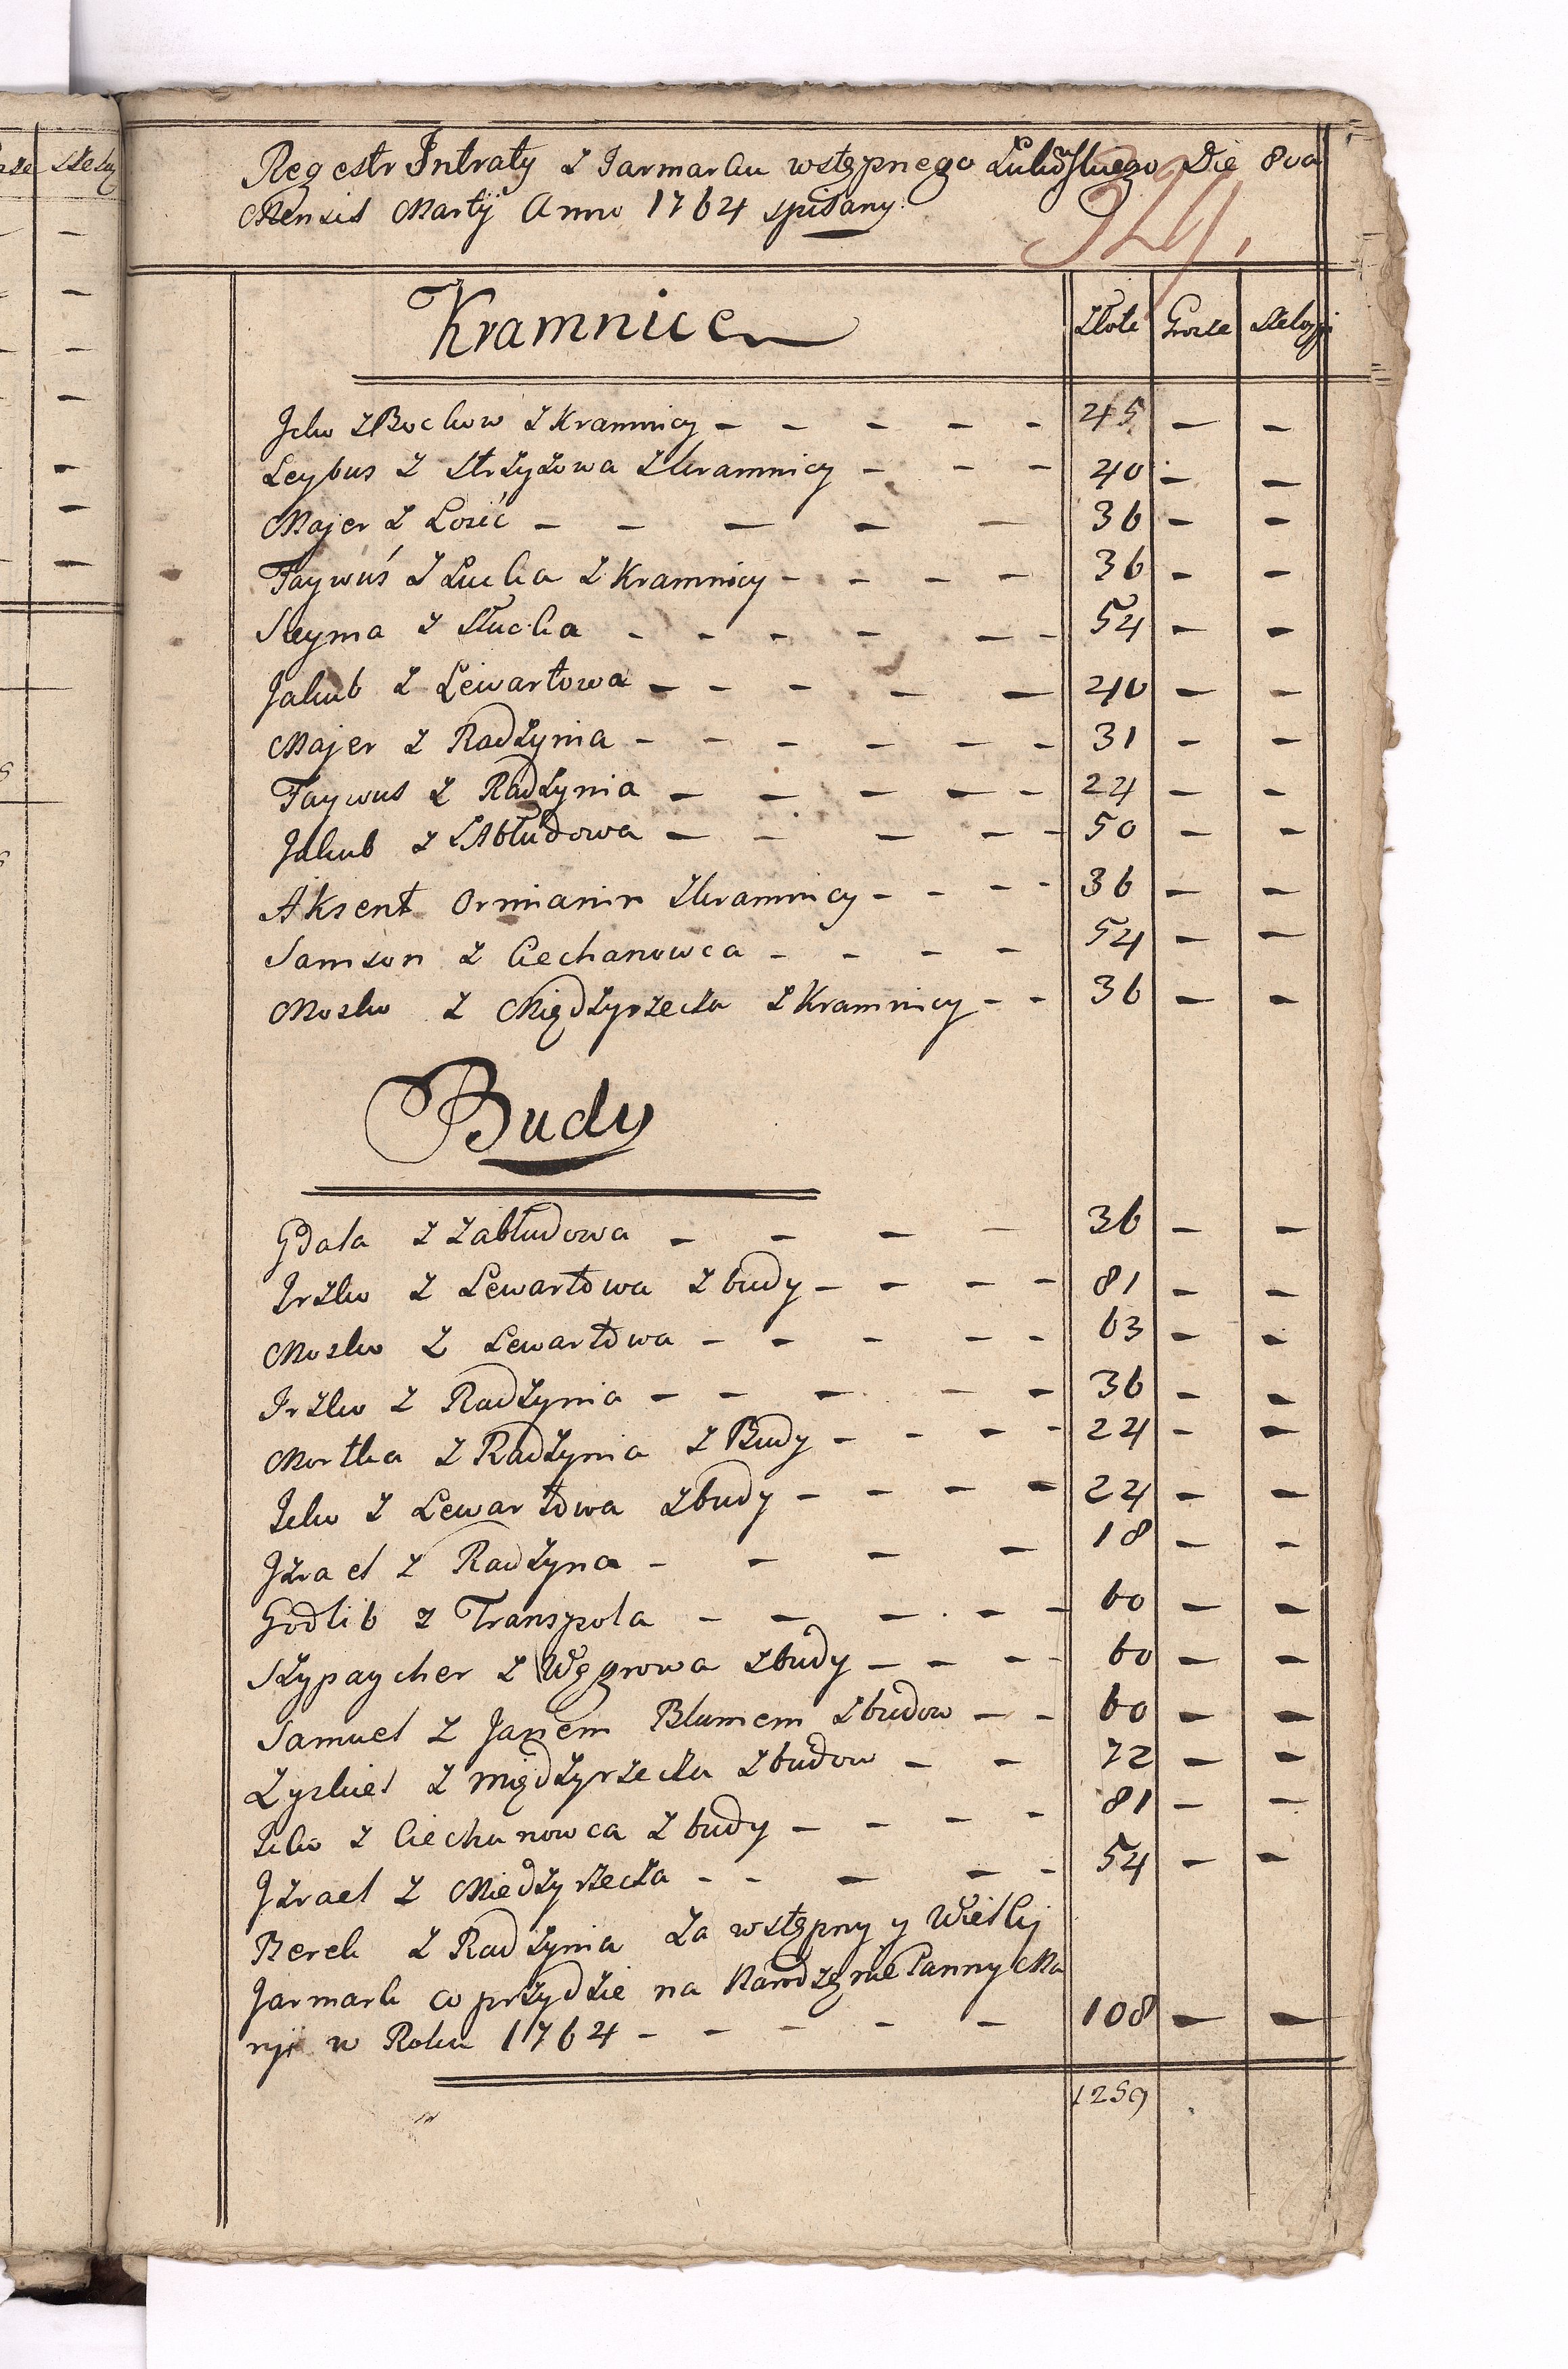 Regestr Intraty z Jarmarku wstępnego Łukowskiego Die 8va
Mensis Martij Anno 1764 spisany
Kramnice
Złote Grosze Szelągi
Jcko z Bockow z Kramnicy - - - - - 45 - -
Leybus z Strzyżowa z kramnicy - - - 40 - -
Majer z Łosić - - - - - 36 - -
Faywuś z Łucka z Kramnicy - - - - 36 - -
Szyma z Słucka - - - - - - 54 - -
Jakub z Lewartowa - - - - - 40 - -
Majer z Radzynia - - - - - - 31 - -
Faywus z Radzynia - - - - - 24 - -
Jakub z Zabłudowa - - - - - 50 - -
Aksent Ormianin z kramnicy - - - - 36 - -
Samson z Ciechanowca - - - - 54 - -
Moszko z Międzyrzecza z Kramnicy - - 36 - -
Budy
Gdala z Zabłudowa - - - - 36 - -
Irzko z Lewartowa z budy - - - - 81 - -
Moszko z Lewartowa - - - - - 63 - -
Irzko z Radzynia - - - - - 36 - -
Mortka z Radzynia z Budy - - - - 24 - -
Icko z Lewartowa z budy - - - - 24 - -
Jzrael z Radzyna - - - - 18 - -
Godlib z Transpola - - - - - 60 - -
Szypaycher z Węgrowa z budy - - - 60 - -
Samuel z Janem Blumem z budow - - 60 - -
Zyskiel z Międzyrzecza z budow - - 72 - -
Icko z Ciechanowca z budy - - - - 81 - -
Jzrael z Miedzyrzecza - - - - - 54 - -
Berek z Radzynia za wstępny y Wielki
Jarmark co przydzie na Narodzęnie Panny Ma
ryi w Roku 1764 - - - - - 108 - -
1259